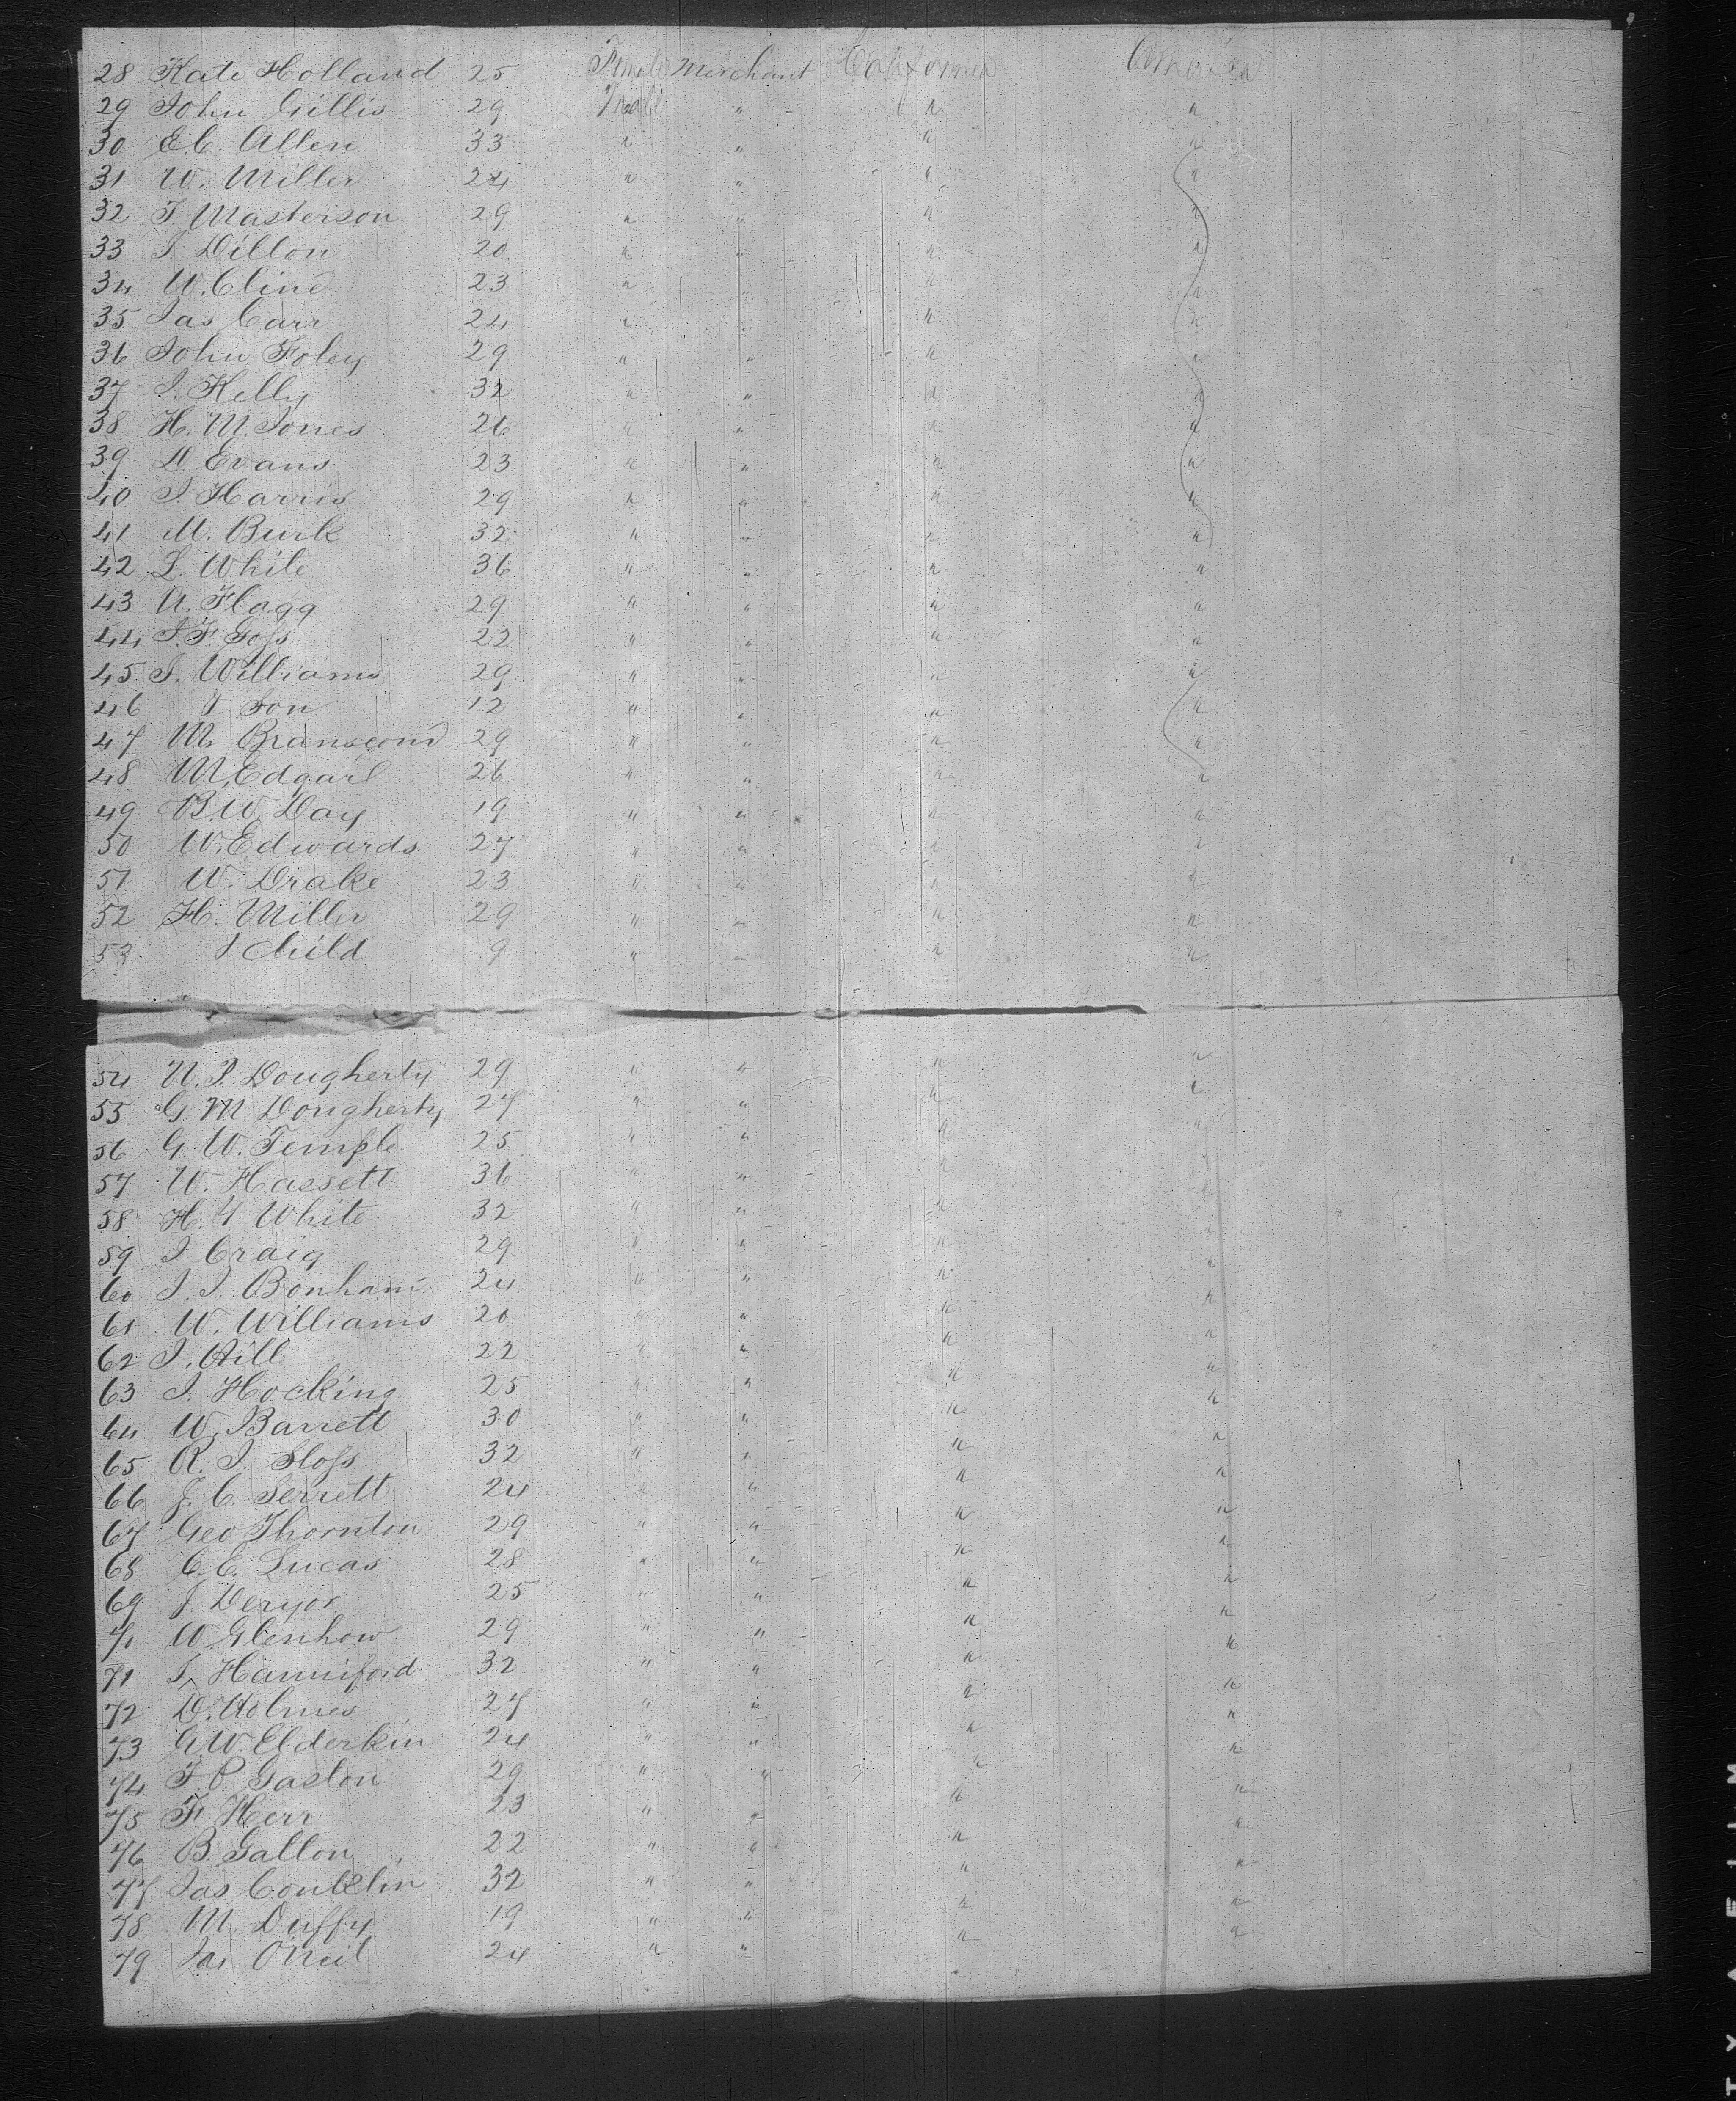 28 Kate Holland 25 Female Merchant California America
29 John Gillis 29 Male " " "
30 E.C. Allen 33 " " " "
31 W. Miller 24 " " " "
32 T. Masterson 29 " " " "
33 J. Dillon 20 " " " "
34 W. Cline 23 " " " "
35 Jas Carr 24 " " " "
36 John Foley 29 " " " "
37 J. Kelly 32 " " " "
38 H. M. Jones 26 " " " "
39 D. Evans 23 " " " "
40 J. Harris 29 " " " "
41 M. Burk 32 " " " "
42 L. White 36 " " " "
43 A. Flagg 29 " " " "
44 J. F. Goss 22 " " " "
45 J. Williams 29 " " " "
46 & Son 12 " " " "
47 M. Branscomb 29 " " " "
48 M. Edgarl 26 " " " "
49 B.W. Day 19 " " " "
50 W. Edwards 27 " " " "
51 W. Drake 23 " " " "
52 H. Miller 29 " " " "
53 & Child 9 " " " "
54 N. P. Dougherty 29 " " " "
55 G. M Dougherty 27 " " " "
56 G. W. Temple 25 " " " "
57 W. Hassett 36 " " " "
58 H. White 32 " " " "
59 J Craig 29 " " " "
60 J. J. Bonham 24 " " " "
61 W. Williams 20 " " " "
62 J. Hill 22 " " " "
63 J. Hocking 25 " " " "
64 W. Barrett 30 " " " "
65 R. J. Sloss 32 " " " "
66 J. C. Serrett 24 " " " "
67 Geo Thornton 29 " " " "
68 C. E. Lucas 28 " " " "
69 J. Deryor 25 " " " "
70 W Glenhow 29 " " " "
71 J. Hanniford 32 " " " "
72 D. Holmes 27 " " " "
73 G.W. Elderkin 24 " " " "
74 T. P. Gaston 29 " " " "
75 F. Herr 23 " " " "
76 B. Gallon 22 " " " "
77 Jas Conklin 32 " " " "
78 M. Duffy 19 " " " "
79 Jas O'Neil 24 " " " "